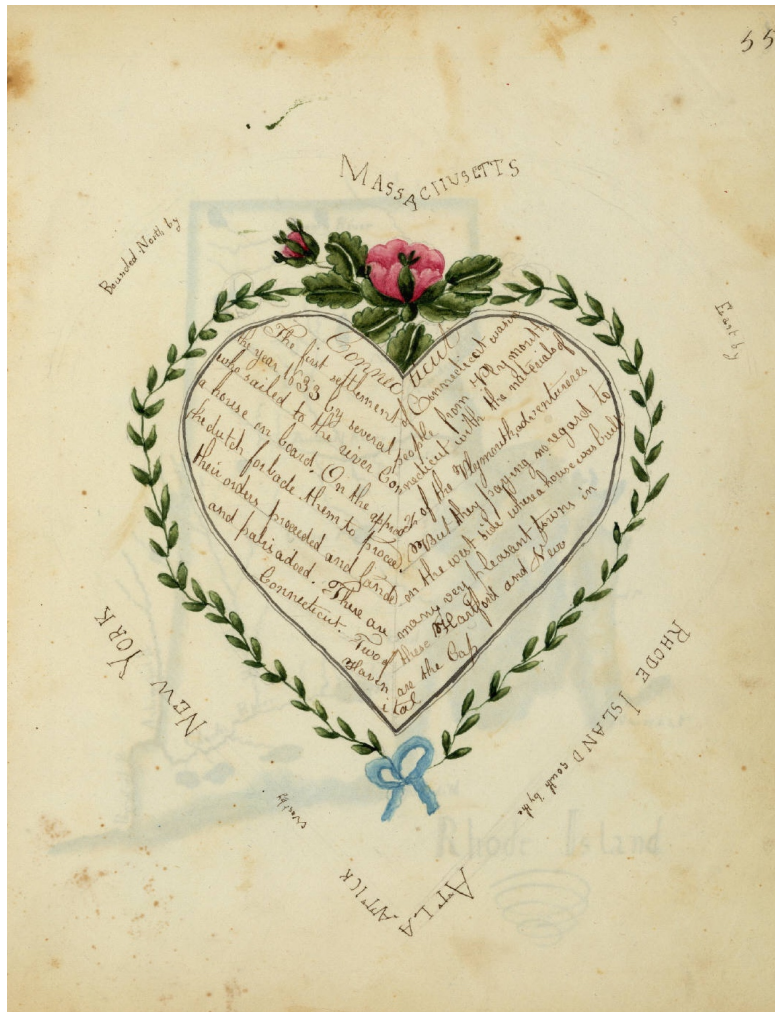 55
Bounded North by
MASSACHUSETTS
East by
RHODE ISLAND south by the
ATLA
NTICK
west by
NEW YORK
Connecticut
The first settlement of Connecticut was in
the year 1633 by several people from Plymouth
who sailed to the river Connecticut with the materials of
a house on board. On the approach of the Plymouth adventureres
the dutch forbade them to proceed. But they paying no regard to
their orders proceeded and landed on the west side where a house was built
and palisadoed. There are many very pleasant towns in
Connecticut. Two of these Hartford and New
Haven are the Cap
ital
Rhode Island